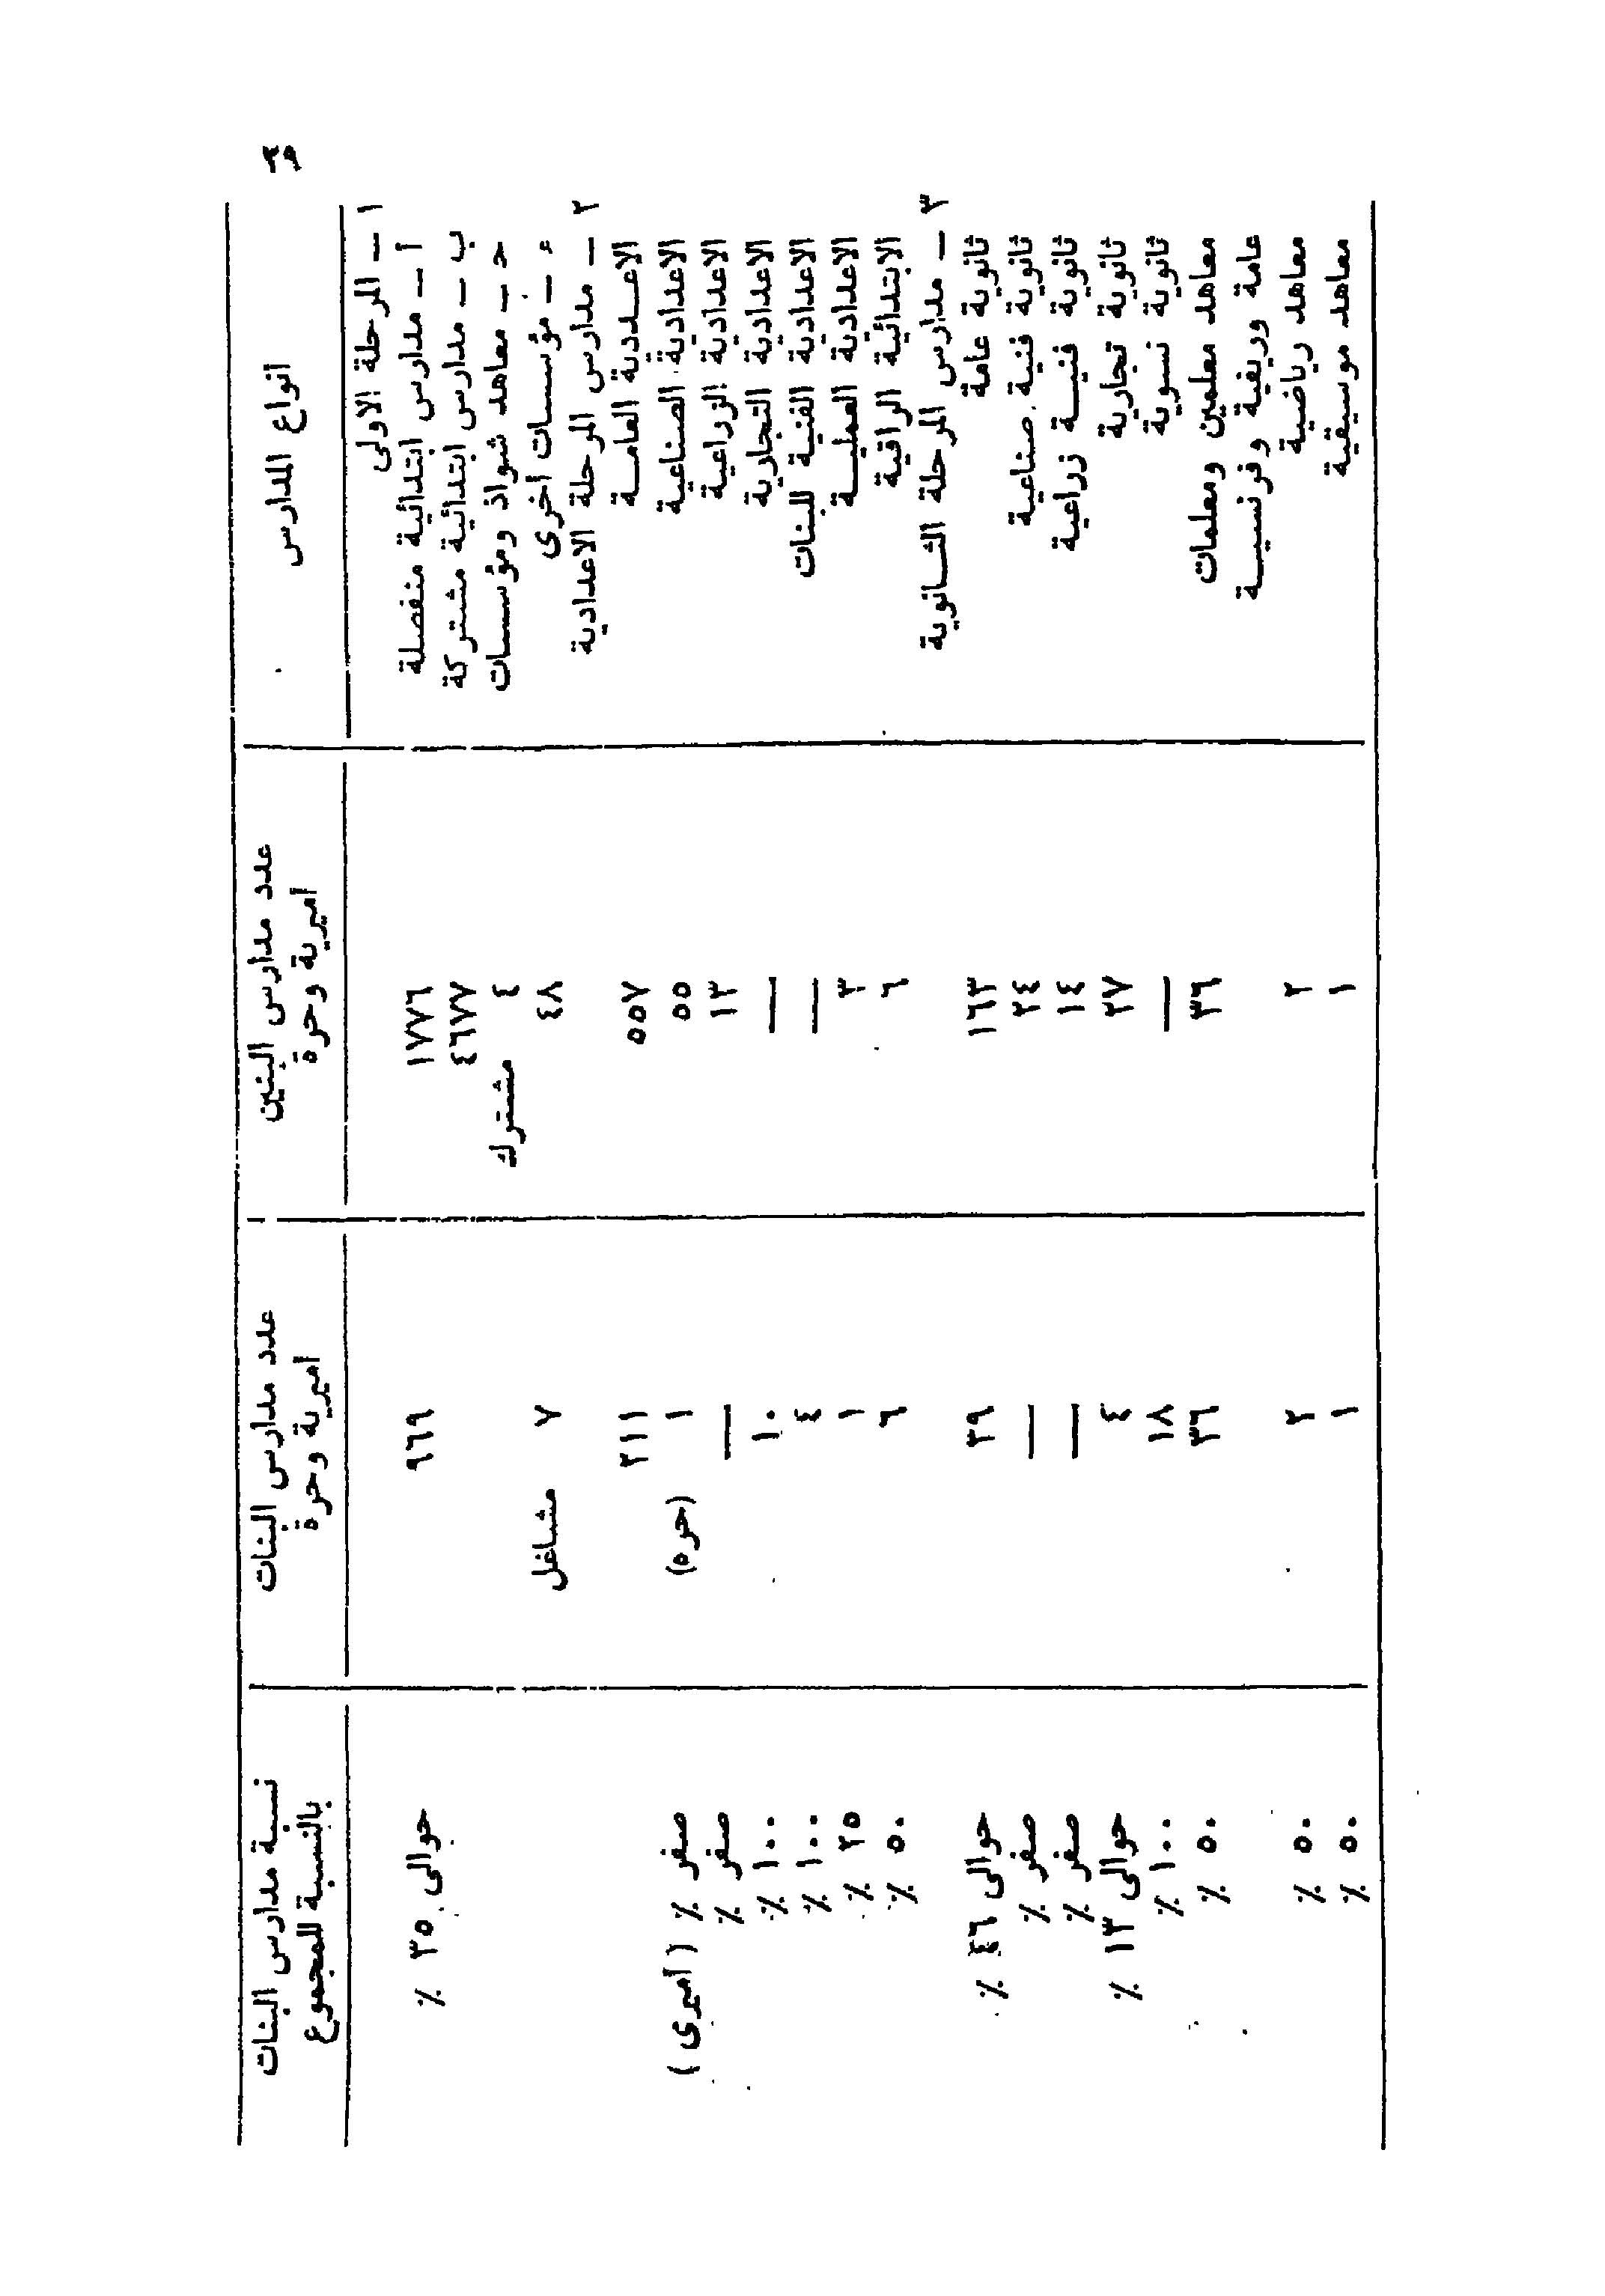 ٣٥
أنواع المدارس | عدد مدارس البنين أميرية وحرة | عدد مدارس البنات أميرية وحرة | نسبة مدارس البنات بالنسبة للمجموع
١ ـ المرحلة الاولى
أ ـ مدارس ابتدائية منفصلة | ١٧٧٦ | ٩٦٩ | حوالى ٣٥ ٪
ب ـ مدارس ابتدائية مشتركة | ٤٦٧٧
حـ ـ معاهد شواذ ومؤسسات | ٤ مشترك
ء ـ مؤسسات أخرى | ٤٨ | ٧ مشاغل
٢ ـ مدارس المرحلة الاعدادية
الاعـددية العامـة | ٥٥٧ | ٢١١
الاعدادية الصناعية | ٥٥ | ١ (حره) | صفر ٪ (أميرى)
الاعدادية الزراعية | ١٣ | — | صفر ٪
الاعدادية التجارية | — | ١٠ | ١٠٠ ٪
الاعدادية الفنية للبنات | — | ٤ | ١٠٠ ٪
الاعدادية العمليـة | ٣ | ١ | ٢٥ ٪
الابتدائية الراقية | ٦ | ٦ | ٥٠ ٪
٣ ـ مدارس المرحلة الثـانوية
ثانوية عامة | ١٦٣ | ٣٩ | حوالى ٤٦ ٪
ثانوية فنية صناعية | ٢٤ | — | صفر ٪
ثانوية فنيـة زراعية | ١٤ | — | صفر ٪
ثانوية تجارية | ٢٧ | ٤ | حوالى ١٣ ٪
ثانوية نسوية | — | ١٨ | ١٠٠ ٪
معاهد معلمين ومعلمات | ٣٦ | ٣٦ | ٥٠ ٪
عامة وريفية وفرنسيـة
معاهد رياضية | ٢ | ٢ | ٥٠ ٪
معاهد موسيقية | ١ | ١ | ٥٠ ٪